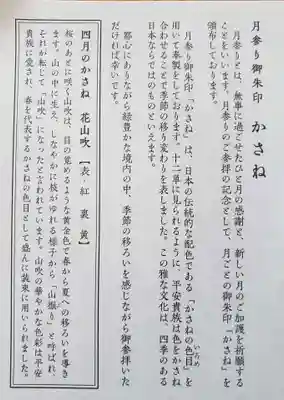 月参り御朱印　かさね
月参りとは、無事に過ごせたひと月の感謝と、新しい月のご加護を祈願する
ことをいいます。月参りのご参拝の記念として、月ごとの御朱印「かさね」を
頒布しております。
月参り御朱印「かさね」は、日本の伝統的な配色である「かさねの色目」を
いろめ
用いて奉製をしております。十二単に見られるように、平安貴族は色をかさね
合わせることで季節の移り変わりを表しました。この雅な文化は、四季のある
日本ならではのものといえます。
都心にありながら緑豊かな境内の中、季節の移ろいを感じながら御参拝いた
だければ幸いです。
四月のかさね　花山吹【表　紅　裏　黄】
桜のあとに咲く山吹は、目の覚めるような黄金色で春から夏への移ろいを導き
ます。山の中に生え、しなやかに枝がゆれる様子から「山振り」と呼ばれ、
それが転じて「山吹」になったとされています。山吹の華やかな色彩は平安
貴族に愛され、春を代表するかさねの色目として盛んに装束に用いられました。